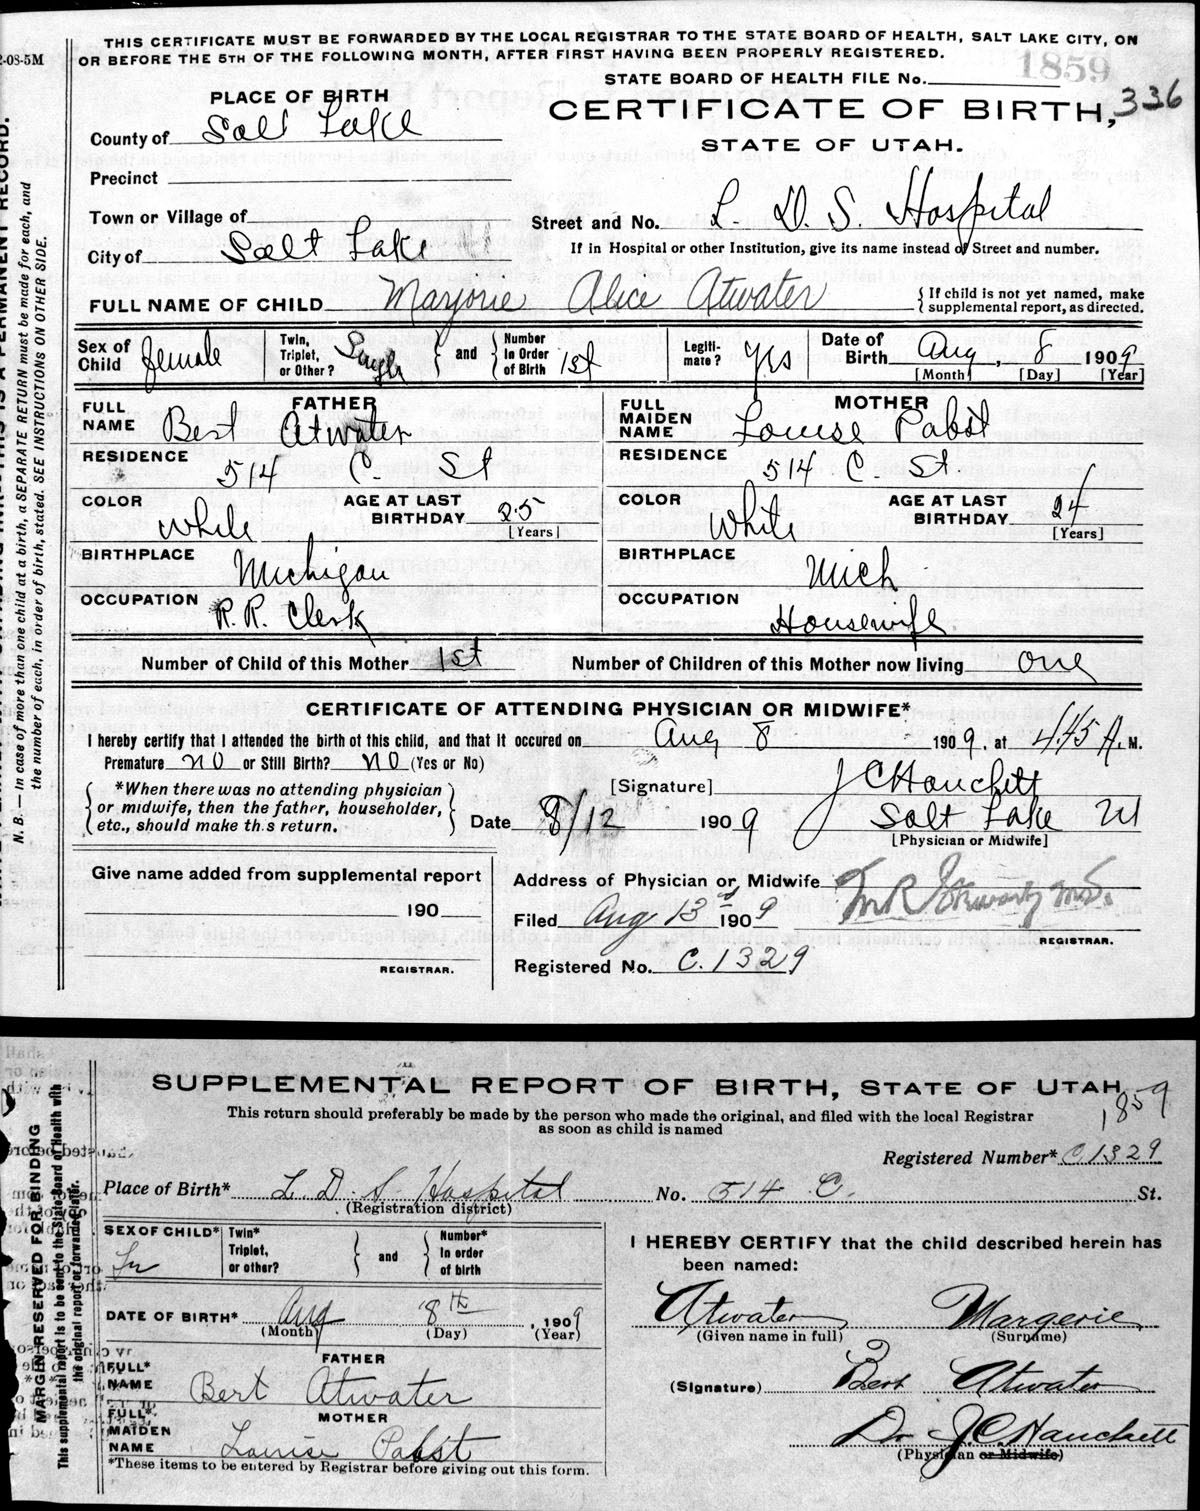 THIS CERTIFICATE MUST BE FORWARDED BY THE LOCAL REGISTRAR TO THE STATE BOARD OF HEALTH, SALT LAKE CITY, ON
OR BEFORE THE 5TH OF THE FOLLOWING MONTH, AFTER FIRST HAVING BEEN PROPERLY REGISTERED.
2-08-5M
STATE BOARD OF HEALTH FILE No. 1859
336
PLACE OF BIRTH
CERTIFICATE OF BIRTH,
STATE OF UTAH.
County of Salt Lake
Precinct
Town or Village of
Street and No. L. D. S. Hospital
City of Salt Lake
If in Hospital or other Institution, give its name instead of Street and number.
FULL NAME OF CHILD Marjorie Alice Atwater
{ If child is not yet named, make
supplemental report, as directed.
Sex of Child female
Twin, Triplet, or Other? Single
and
Number In Order of Birth 1st
Legiti-mate? Yes
Date of Birth Aug, 8 1909
[Month] [Day] [Year]
FATHER
FULL NAME Bert Atwater
MOTHER
FULL MAIDEN NAME Louise Pabst
RESIDENCE 514 C. St
RESIDENCE 514 C. St.
COLOR White
AGE AT LAST BIRTHDAY 25 [Years]
COLOR White
AGE AT LAST BIRTHDAY 24 [Years]
BIRTHPLACE Michigan
BIRTHPLACE Mich
OCCUPATION R.R. Clerk
OCCUPATION Housewife
Number of Child of this Mother 1st
Number of Children of this Mother now living one
CERTIFICATE OF ATTENDING PHYSICIAN OR MIDWIFE*
I hereby certify that I attended the birth of this child, and that it occured on Aug 8 1909, at 4:45 A. M.
Premature no or Still Birth? NO (Yes or No)
*When there was no attending physician
or midwife, then the father, householder,
etc., should make this return.
[Signature] J C Hanchett
Date 8/12 1909
Salt Lake Ut
[Physician or Midwife]
Give name added from supplemental report
190
REGISTRAR.
Address of Physician or Midwife
Filed Aug 13 1909
REGISTRAR.
Registered No. C. 1329
N. B. — In case of more than one child at a birth, a SEPARATE RETURN must be made for each, and
the number of each, in order of birth, stated. SEE INSTRUCTIONS ON OTHER SIDE.
SUPPLEMENTAL REPORT OF BIRTH, STATE OF UTAH
1859
This return should preferably be made by the person who made the original, and filed with the local Registrar
as soon as child is named
Registered Number* C. 1329
Place of Birth* L D S Hospital No. 514 C. St.
(Registration district)
SEX OF CHILD*
Twin* Triplet, or other?
and
Number* In order of birth
DATE OF BIRTH* Aug 8th, 1909
(Month) (Day) (Year)
FATHER
FULL* NAME Bert Atwater
MOTHER
FULL* MAIDEN NAME Louise Pabst
*These items to be entered by Registrar before giving out this form.
I HEREBY CERTIFY that the child described herein has
been named:
Atwater Margerie
(Given name in full) (Surname)
(Signature) Bert Atwater
Dr J. C. Hanchett
(Physician or Midwife)
MARGIN RESERVED FOR BINDING
This supplemental report is to be sent to the State Board of Health with
the original report or forwarded later.